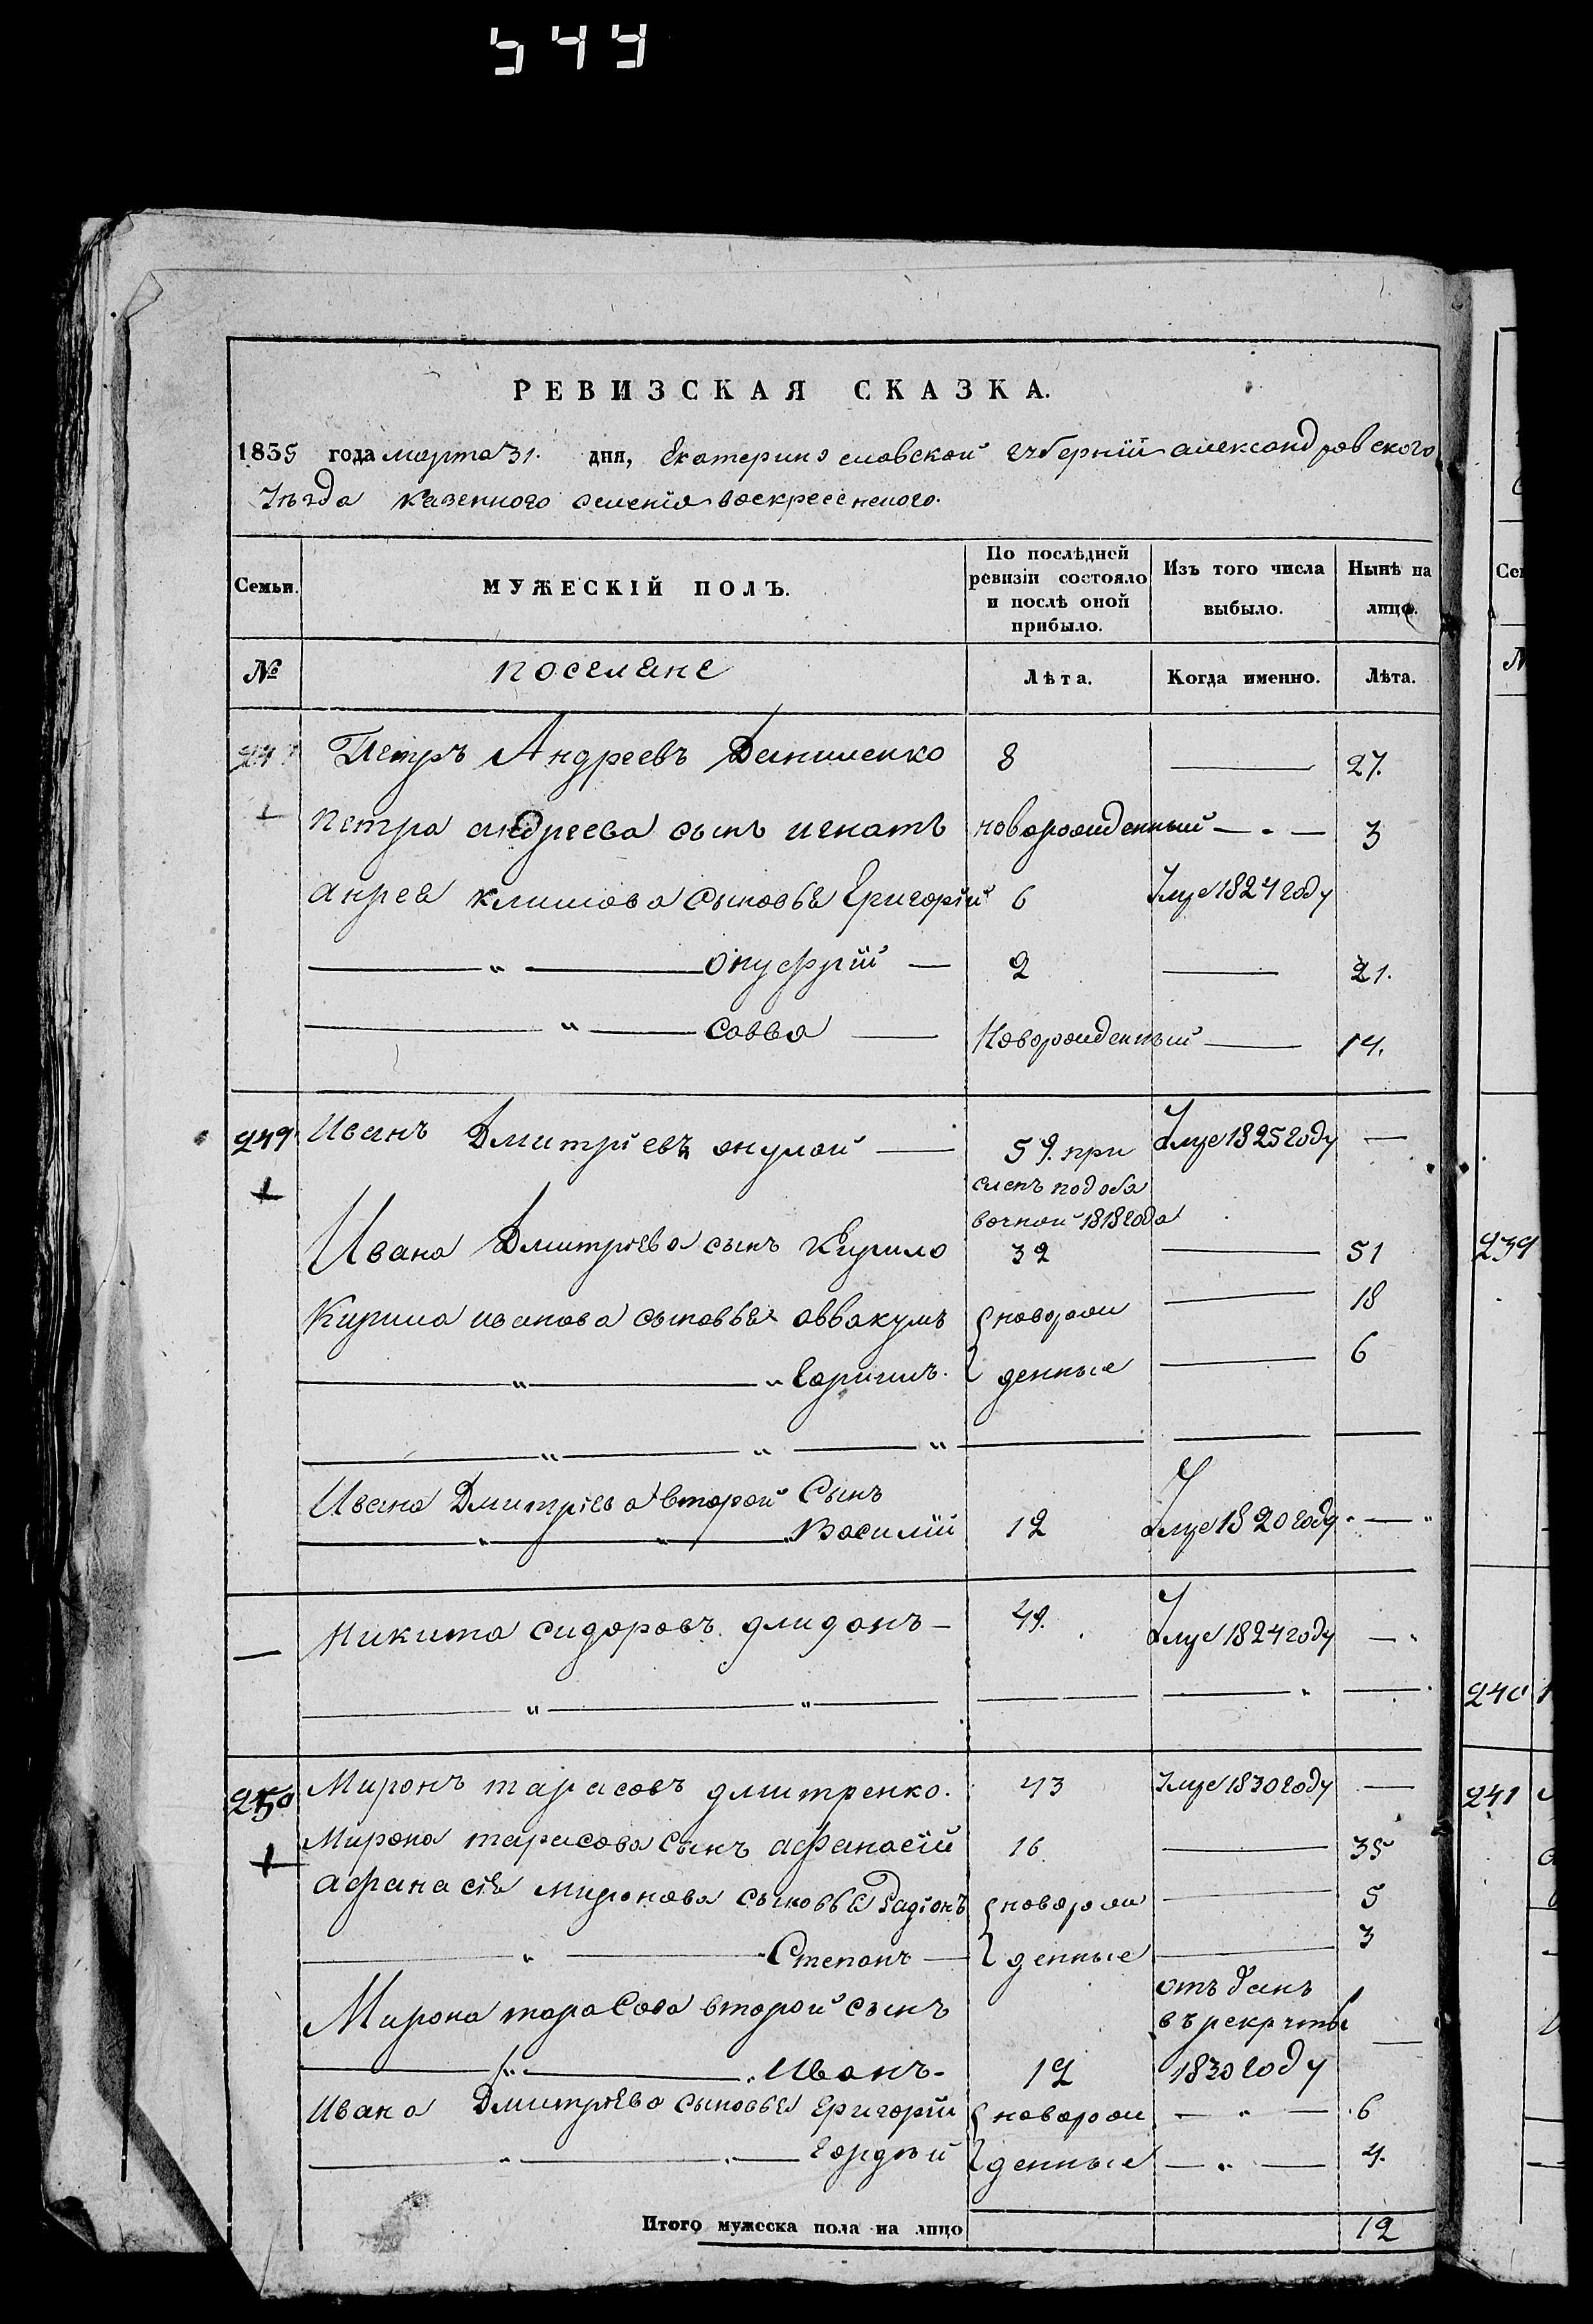 544
РЕВИЗСКАЯ СКАЗКА.
1835 года марта 31. дня, Екатеринославской губернїи александровского
уѣзда казенного селенїя воскресенского.
Семьи. МУЖЕСКІЙ ПОЛЪ. По послѣдней ревизіи состояло и послѣ оной прибыло. Изъ того числа выбыло. Нынѣ на лицо.
№ поселяне Лѣта. Когда именно. Лѣта.
Петръ Андреевъ Даниленко 8 27.
Петра андреева сынъ игнатъ новорожденный 3
анрея климова сыновья Григорїй 6 Умре 1824 году
онуфрїй 2 21.
савва Новорожденный 14.
249 Иванъ Дмитрїевъ 59. при Умре 1825 году
вочной 1818 года
Ивана Дмитрїева сынъ Кирило 32 51
Кирила иванова сыновья аввакумъ новорож 18
денные 6
Ивана Дмитрїева второй Сынъ
Василїй 12 Умре 1820 году
Никита сидоровъ 49. Умре 1824 году
250 Миронъ тарасовъ дмитренко. 43 Умре 1830 году
Мирона тарасова сынъ афанасїй 16 35
афанасїя миронова сыновья Радїонъ новорож 5
Степанъ денные 3
Мирона тарасова второй сынъ отъданъ
въ рекруты
Иванъ 12 1830 году
Ивана Дмитрїева сыновья Григорїй новорож 6
Гордѣй денные 4.
Итого мужеска пола на лицо 12
239
240
241